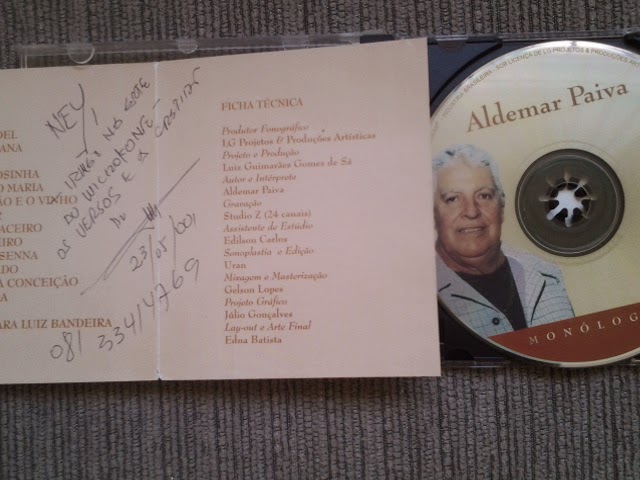 DEL
ANA
OSINHA
O MARIA
ÃO E O VINHO
R
DACEIRO
EIRO
SENNA
ADO
A CONCEIÇÃO
RA
ARA LUIZ BANDEIRA
NEY
IRMÃO NAS
DO MICROFONE
OS VERSOS E A
DO
23/05/001
081 33414769
FICHA TÉCNICA
Produtor Fonográfico
LG Projetos & Produções Artísticas
Projeto e Produção
Luiz Guimarães Gomes de Sá
Autor e Intérprete
Aldemar Paiva
Gravação
Studio Z (24 canais)
Assistente de Estúdio
Edilson Carlos
Sonoplastia e Edição
Uran
Mixagem e Masterização
Gelson Lopes
Projeto Gráfico
Júlio Gonçalves
Lay-out e Arte Final
Edna Batista
INDÚSTRIA BRASILEIRA - SOB LICENÇA DE LG PROJETOS & PRODUÇÕES ART
Aldemar Paiva
MONÓLOG